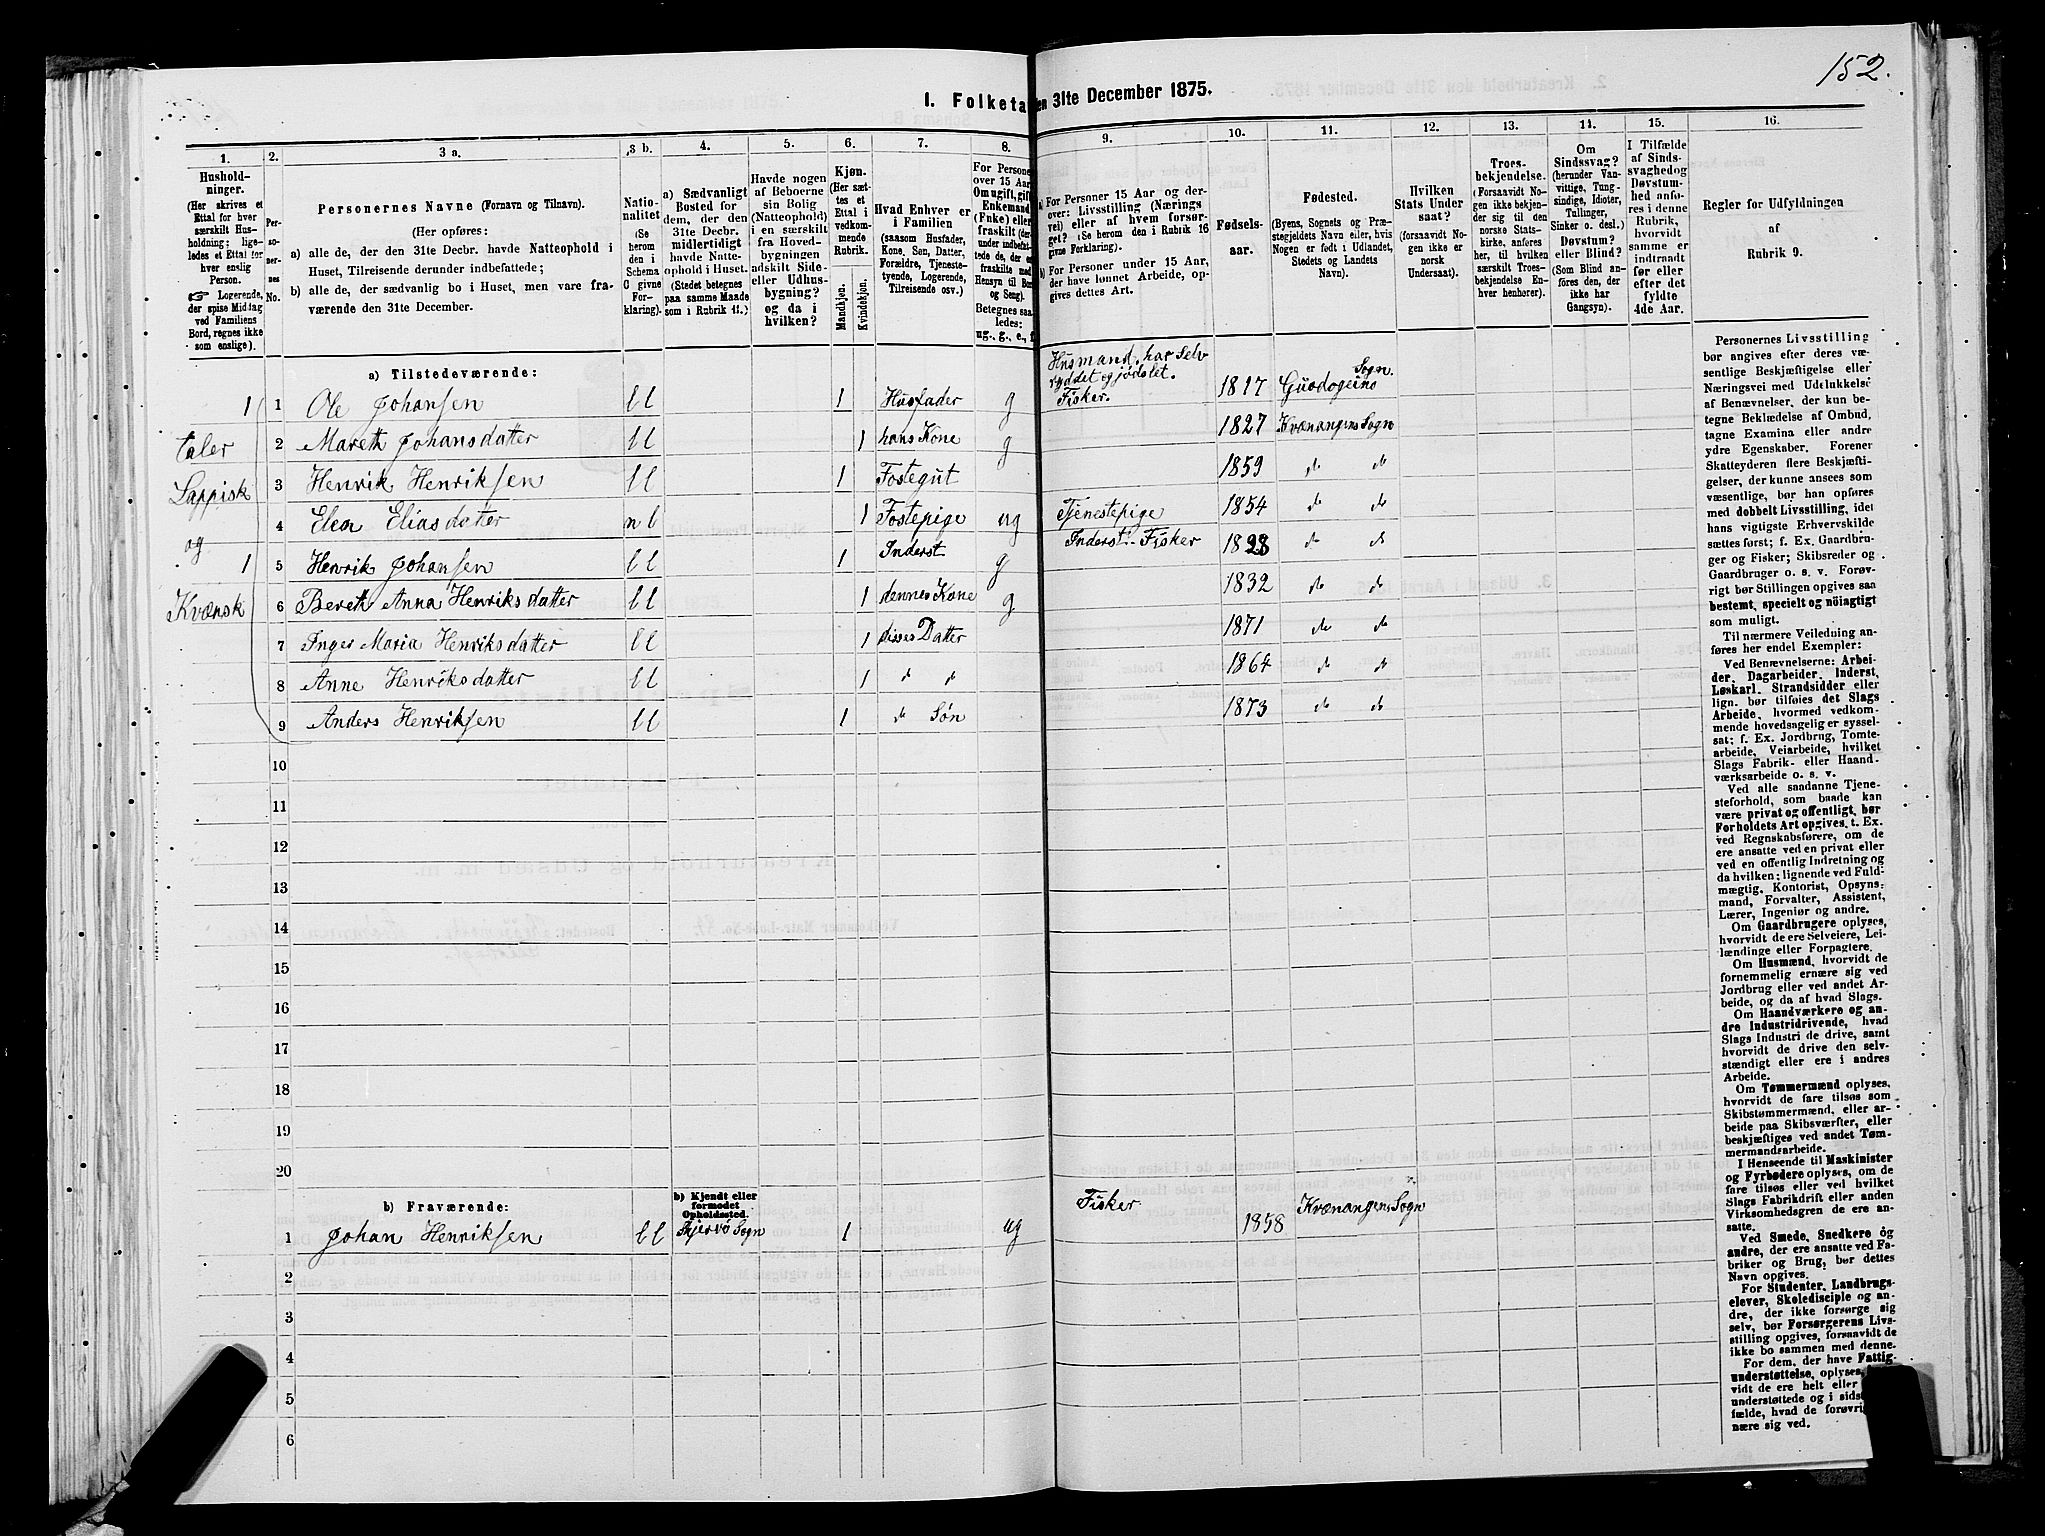 152.
I. Folketa
en 31te December 1875.
1.
Husholdninger.
(Her skrives et
Ettal for hver
særskilt Husholdning; ligeledes et Ettal for
hver enslig
Person.
☞ Logerende,
der spise Middag
ved Familiens
Bord, regnes ikke
som enslige).
2.
Personernes
No.
3 a.
Personernes Navne (Fornavn og Tilnavn).
(Her opføres:
a) alle de, der den 31te Decbr. havde Natteophold i
Huset, Tilreisende derunder indbefattede;
b) alle de, der sædvanlig bo i Huset, men vare fraværende den 31te December.
3 b.
Nationalitet
(Se
herom
den i
Schema
C givne
Forklaring).
4.
a) Sædvanligt
Bosted for
dem, der den
31te Decbr.
midlertidigt
havde Natteophold i Huset.
(Stedet betegnes
paa samme Maade
som i Rubrik 11.)
5.
Havde nogen
af Beboerne
sin Bolig
(Natteophold)
i en særskilt
fra Hovedbygningen
adskilt Side-
eller Udhusbygning?
og da i
hvilken?
6.
Kjøn.
(Her sættes et
Ettal i
vedkommende
Rubrik.
Mandkjøn.
Kvindekjøn.
7.
Hvad Enhver er
i Familien
(saasom Husfader,
Kone, Søn, Datter,
Forældre, Tjenestetyende, Logerende,
Tilreisende osv.)
8.
For Persone
over 15 Aar
Omugift, gift
Enkemand
(Enke) eller
fraskilt
9.
a) For Personer 15 Aar og derover: Livsstilling (Næringsvei) eller af hvem forsørget? (Se herom den i Rubrik 16
givne Forklaring.)
b) For Personer under 15 Aar,
der have lønnet Arbeide, opgives dettes Art.
10.
Fødselsaar.
11.
Fødested.
(Byens, Sognets og Præstegjeldets Navn eller, hvis
Nogen er født i Udlandet,
Stedets og Landets
Navn).
12.
Hvilken
Stats Undersaat?
(forsaavidt Nogen ikke er
norsk
Undersaat).
13.
Troesbekjendelse.
(Forsaavidt Nogen ikke bekjender sig til den
norske Statskirke, anføres
her, til hvilken
særskilt Troesbekjendelse Enhver henhører).
14.
Om
Sindssvag?
(herunder Vanvittige, Tungsindige, Idioter,
Tullinger,
Sinker o. desl.)
Døvstum?
eller Blind?
(Som Blind anføres den, der
ikke har
Gangsyn).
15.
I Tilfælde
af Sindssvaghed og
Døvstumhed anføres i denne
Rubrik,
hvorvidt
samme er
indtraadt
før eller
efter det
fyldte
4de Aar.
16.
Regler for Udfyldningen
af
Rubrik 9.
a) Tilstedeværende:
Husmand, har selv
ryddet og jødslet.
Fisker.
1 1 Ole Johansen l l 1 Husfader g 1817 Guodogeino Sogn
taler 2 Mareth Johansdatter l l 1 hans Kone g 1827 Kvænangens Sogn
3 Henrik Henriksen l l 1 Fostegut 1859 do do
Lappisk 4 Elen Eliasdatter n l 1 Fostepige ug Tjenestepige 1854 do do
og 1 5 Henrik Johansen l l 1 Inderst g Inderst - Fisker 1828 do do
Kvænsk 6 Bereth Anna Henriksdatter l l 1 dennes Kone g 1832 do do
7 Inger Maria Henriksdatter l l 1 disses Datter 1871 do do
8 Anne Henriksdatter l l 1 do do 1864 do do
9 Anders Henriksen l l 1 do Søn 1873 do do
10
11
12
13
14
15
16
17
18
19
20
b) Fraværende:
b) Kjendt eller
formodet
Opholdssted.
1 Johan Henriksen l l Skjervø Sogn 1 ug Fisker 1858 Kvænangens Sogn
2
3
4
5
6
Personernes Livsstilling
bør angives efter deres væsentlige Beskjæftigelse eller
Næringsvei med Udelukkelse
af Benævnelser, der kun betegne Beklædelse af Ombud,
tagne Examina eller andre
ydre Egenskaber. Forener
Skatteyderen flere Beskjæftigelser, der kunne ansees som
væsentlige, bør han opføres
med dobbelt Livsstilling, idet
hans vigtigste Erhvervskilde
sættes først; f. Ex. Gaardbruger og Fisker; Skibsreder og
Gaardbruger o. s. v. Forøvrigt bør Stillingen opgives saa
bestemt, specielt og nöiagtigt
som muligt.
Til nærmere Veiledning anføres her endel Exempler:
Ved Benævnelserne: Arbeider, Dagarbeider, Inderst,
Løskarl, Strandsidder eller
lign. bør tilføies det Slags
Arbeide, hvormed vedkommende hovedsagelig er sysselsat; f. Ex. Jordbrug, Tomtearbeide, Veiarbeide, hvilket
Slags Fabrik- eller Haandværksarbeide o. s. v.
Ved alle saadanne Tjenesteforhold, som baade kan
være privat og offentligt, bør
Forholdets Art opgives, t. Ex.
ved Regnskabsførere, om de
ere ansatte ved en privat eller
ved en offentlig Indretning og
da hvilken; lignende ved Fuldmægtig, Kontorist, Opsynsmand, Forvalter, Assistent,
Lærer, Ingeniør og andre.
Om Gaardbrugere oplyses,
hvorvidt de ere Selveiere, Leilændinge eller Forpagtere.
Om Husmænd, hvorvidt de
fornemmelig ernære sig ved
Jordbrug eller ved andet Arbeide, og da af hvad Slags.
Om Haandværkere og andre Industridrivende, hvad
Slags Industri de drive, samt
hvorvidt de drive den selvstændigt eller ere i andres
Arbeide.
Om Tømmermænd oplyses,
hvorvidt de fare tilsøs som
Skibstømmermænd, eller arbeide paa Skibsværfter, eller
beskjæftiges ved andet Tømmermandsarbeide.
I Henseende til Maskinister
og Fyrbødere oplyses, om de
fare tilsøs eller ved hvilket
Slags Fabrikdrift eller anden
Virksomhedsgren de ere ansatte.
Ved Smede, Snedkere og
andre, der ere ansatte ved Fabriker og Brug, bør dettes
Navn opgives.
For Studenter, Landbrugselever, Skoledisciple og andre, der ikke forsørge sig
selv, bør Forsørgerens Livsstilling opgives, forsaavidt de
ikke bo sammen med denne.
For dem, der have Fattigunderstøttelse, oplyses,